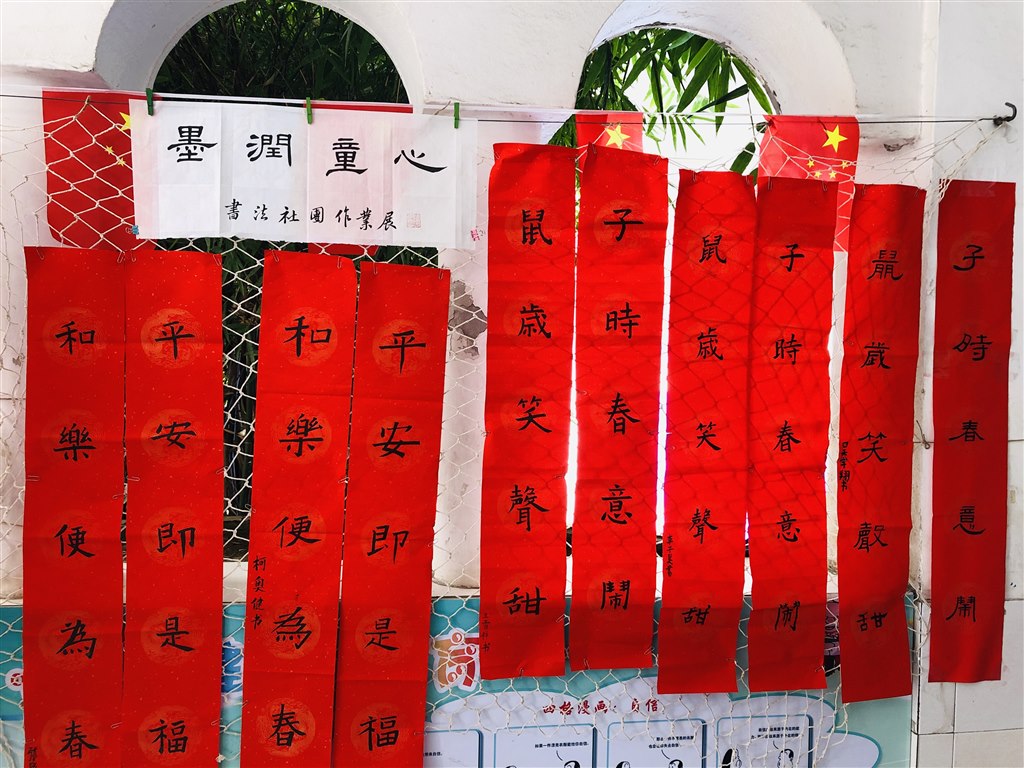 墨潤童心
書法社團作業展
平安即是福
和樂便為春
平安即是福
和樂便為春
柯奥健书
子時春意鬧
鼠歳笑聲甜
子時春意鬧
鼠歳笑聲甜
子時春意鬧
鼠歲笑聲甜
四格漫画
自信